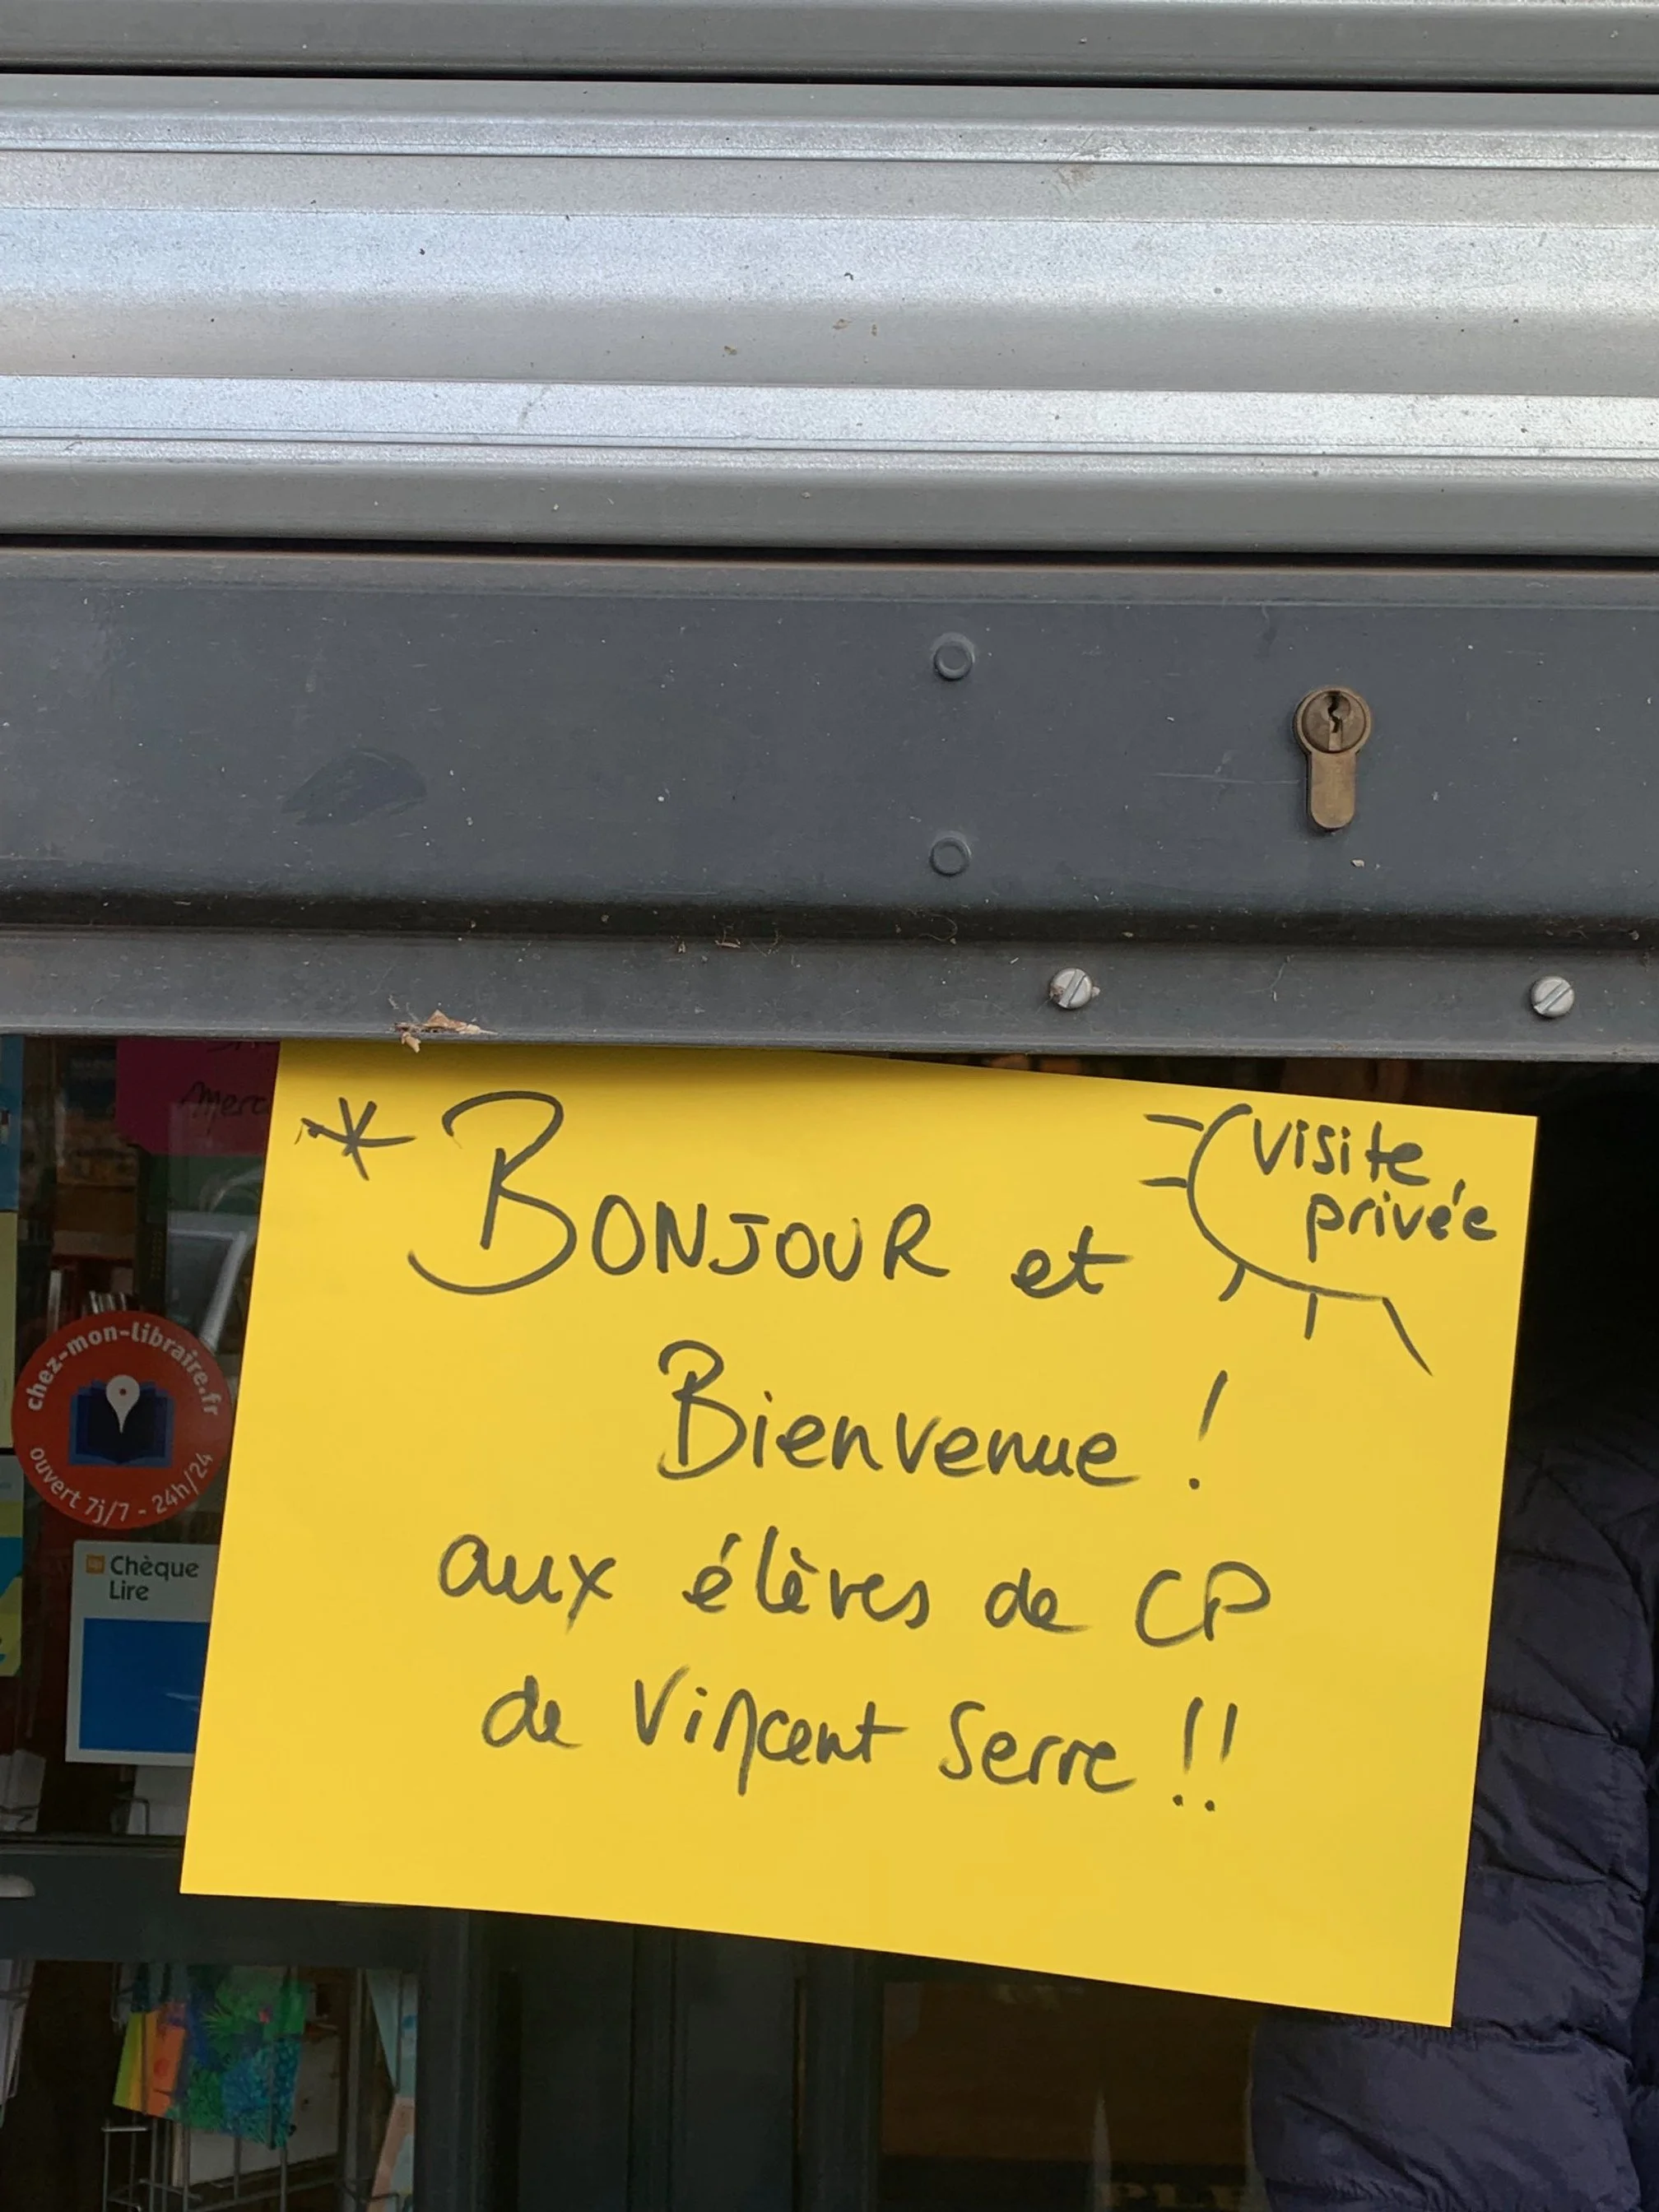 * BONJOUR et
visite
privée
Bienvenue !
aux élèves de CP
de Vincent Serre !!
chez-mon-libraire.fr
ouvert 7j/7 - 24h/24
Chèque
Lire